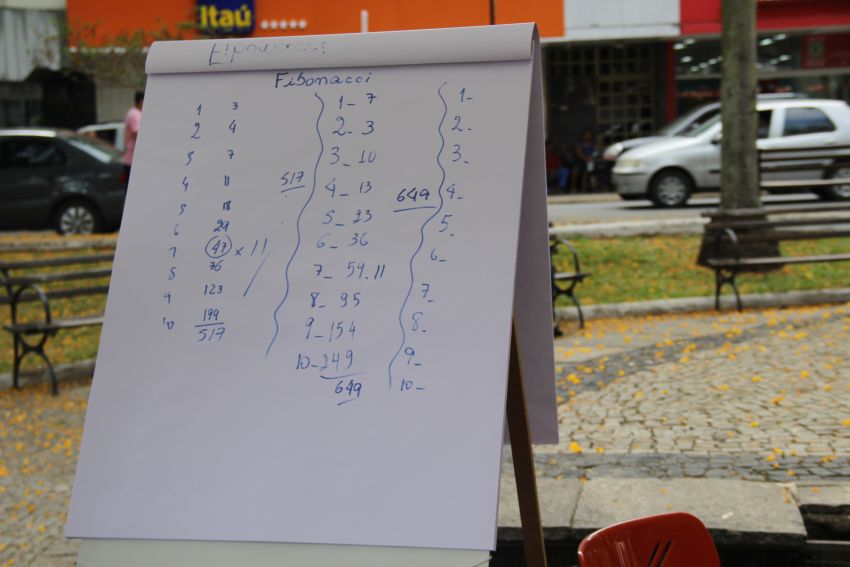 Itaú
Fibonacci
1 3
2 4
3 7
4 11
5 18
6 29
7 47 x 11
8 76
9 123
10 199
517
517
1- 7
2- 3
3- 10
4- 13
5- 23
6- 36
7- 59.11
8- 95
9- 154
10- 249
649
649
1-
2-
3-
4-
5-
6-
7-
8-
9-
10-